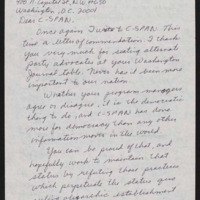 400 N Capitol St, N.W. #650
Washington, D.C. 20001
Dear C-SPAN,
Once again I write to C-SPAN. This
time a letter of commendation. I thank
you very much for seating alternate
party advocates at your Washington
Journal table. Never has it been more
important to our nation.
Whether your program managers
agree or disagree, it is the democratic
thing to do, and C-SPAN has done
more for democracy than any other
information mover in the world.
You can be proud of that, and
hopefully work to maintain that
status by refuting those practices
which perpetuate the status quo
oligarchic established